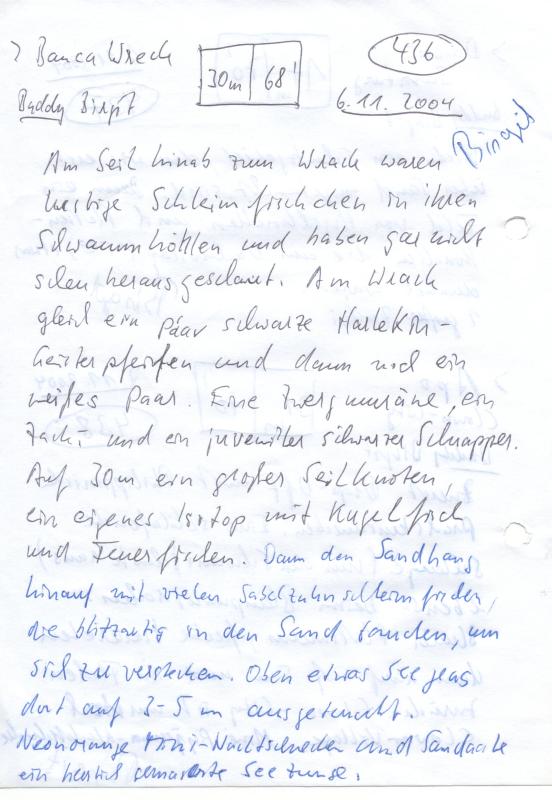 > Banca Wreck
30m | 68'
436
Buddy Birgit
6.11.2004
Birgit
Am Seil hinab zum Wrack waren
lustige Schleimfischchen in ihren
Schwammhöhlen und haben gar nicht
scheu herausgeschaut. Am Wrack
gleich ein paar schwarze Harlekin-
Geisterpfeifen und dann noch ein
weißes Paar. Eine Zwergmuräne, ein
Zack- und ein juveniler schwarzer Schnapper.
Auf 30m ein großer Seilknoten,
ein eigenes Biotop mit Kugelfisch
und Feuerfischen. Dann den Sandhang
hinauf mit vielen Säbelzahnschleimfischen,
die blitzartig in den Sand tauchen, um
sich zu verstecken. Oben etwas Seegras
dort auf 3-5m ausgetaucht.
Neonorange Mini-Nacktschnecken und Sandaale
ein herrlich gemaserte Seezunge.